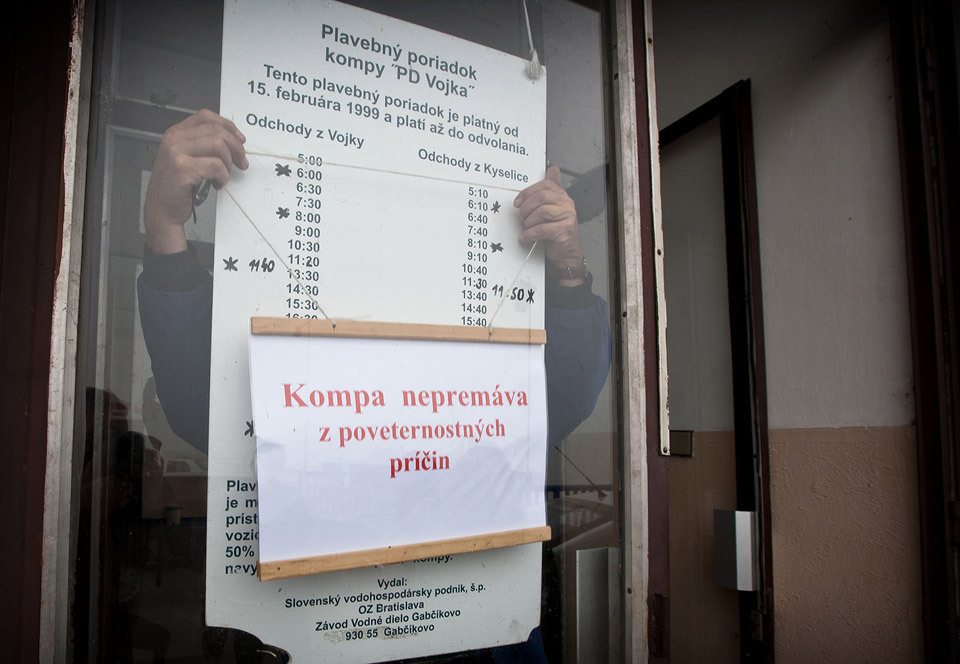 Plavebný poriadok
kompy ˝PD Vojka˝
Tento plavebný poriadok je platný od
15. februára 1999 a platí až do odvolania.
Odchody z Vojky
5:00
6:00
6:30
7:30
8:00
9:00
10:30
11:20
* 1140
13:30
14:30
15:30
16:30
Odchody z Kyselice
5:10
6:10 *
6:40
7:40
8:10 *
9:10
10:40
11:30
11:50 *
13:40
14:40
15:40
Kompa nepremáva
z poveternostných
príčin
Plav
je m
príst
vozid
50%
navy
kompy.
Vydal:
Slovenský vodohospodársky podnik, š.p.
OZ Bratislava
Závod Vodné dielo Gabčíkovo
930 55 Gabčíkovo